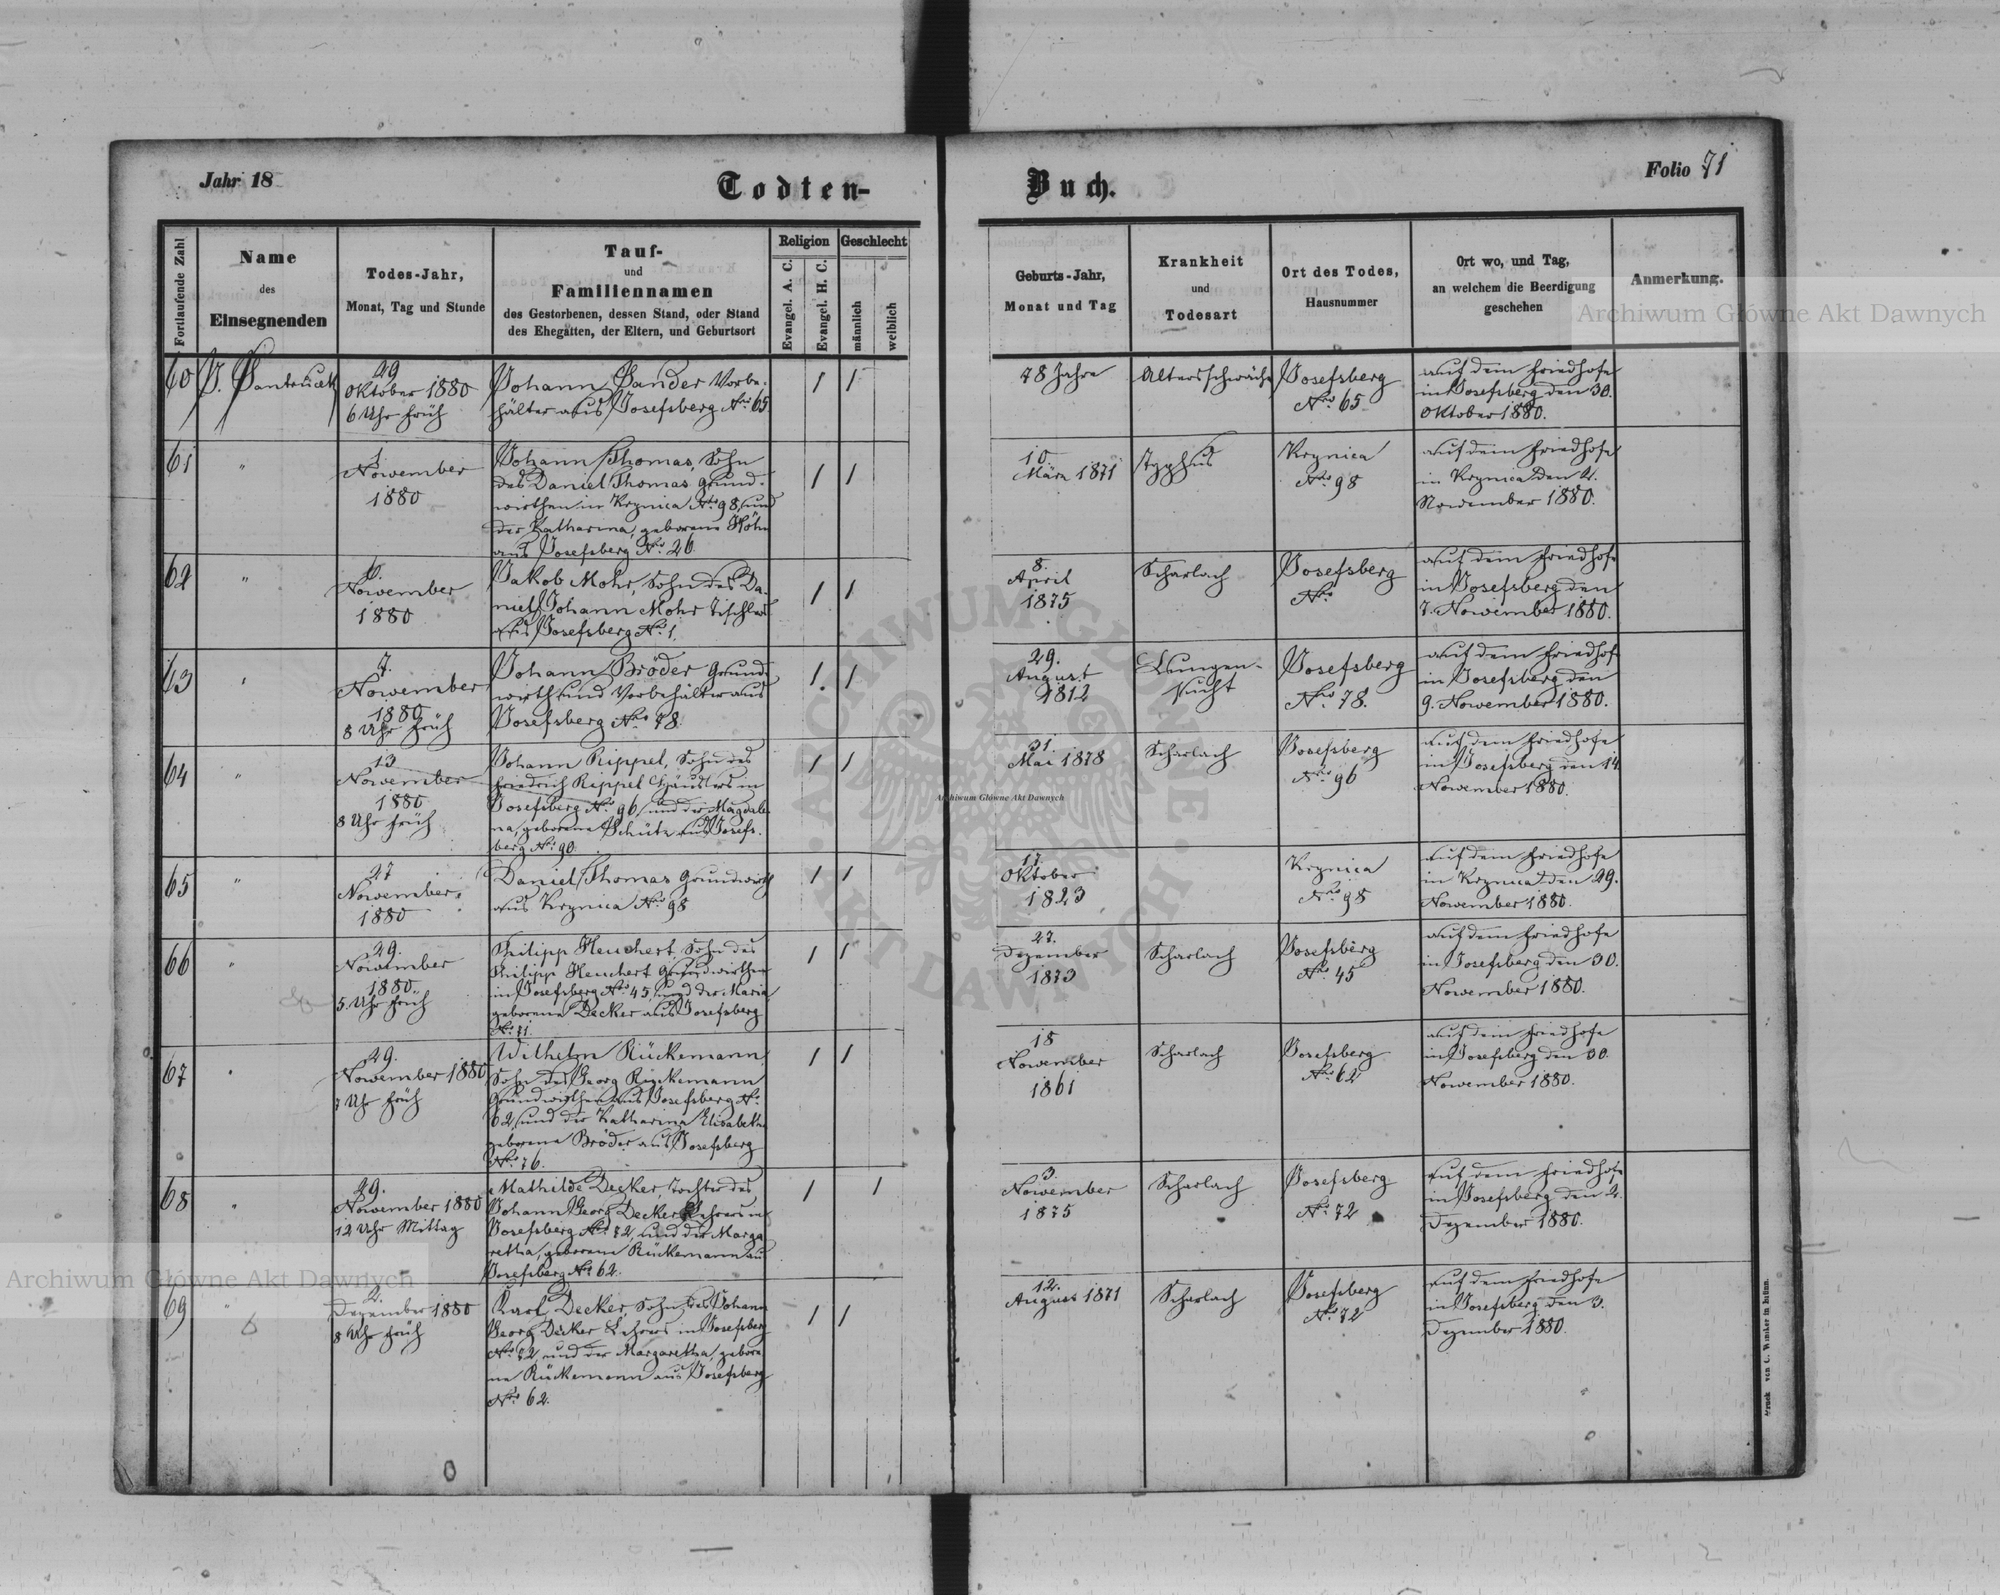 Jahr 18
Todten-
Buch.
Folio 71
Fortlaufende Zahl
Name
des
Einsegnenden
Todes-Jahr,
Monat, Tag und Stunde
Tauf-
und
Familiennamen
des Gestorbenen, dessen Stand, oder Stand
des Ehegatten, der Eltern, und Geburtsort
Religion
Evangel. A. C.
Evangel. H. C.
Geschlecht
männlich
weiblich
Geburts-Jahr,
Monat und Tag
Krankheit
und
Todesart
Ort des Todes,
Hausnummer
Ort wo, und Tag,
an welchem die Beerdigung
geschehen
Anmerkung.
60
29
Oktober 1880
6 Uhr früh
Johann Sander Vorbe-
hälter aus Josefsberg Nro 65.
/ /
78 Jahre
Altersschwäche
Josefsberg
Nro 65
auf dem Friedhofe
in Josefsberg den 30.
Oktober 1880.
61
"
1
November
1880
Johann Thomas, Sohn
des Daniel Thomas Grund-
wirthen in Krynica Nro 98, und
der Katharina, geborene Höhn
aus Josefsberg Nro 26.
/ /
10
März 1871
Typhus
Krynica
Nro 98
auf dem Friedhofe
in Krynica den 2.
November 1880.
62
"
6.
November
1880
Jakob Mohr, Sohn des Da-
niel Johann Mohr Tischlers
aus Josefsberg Nro 1.
/ /
8.
April
1875
Scharlach
Josefsberg
Nro
auf dem Friedhofe
in Josefsberg den
7. November 1880.
63
"
7.
November
1880
8 Uhr früh
Johann Bröder Grund-
wirth und Vorbehälter aus
Josefsberg Nro 78.
/ /
29.
August
1812
Lungen-
sucht
Josefsberg
Nro 78.
auf dem Friedhofe
in Josefsberg den
9. November 1880.
64
"
13
November
1880
8 Uhr früh
Johann Rippel, Sohn des
Friedrich Rippel Häuslers in
Josefsberg Nro 96, und der Magdale-
na, geborene Schütz aus Josefs-
berg Nro 90.
/ /
31.
Mai 1878
Scharlach
Josefsberg
Nro 96
auf dem Friedhofe
in Josefsberg den 14
November 1880.
65
"
27
November
1880
Daniel Thomas Grundwirth
aus Krynica Nro 98
/ /
17.
Oktober
1823
Krynica
Nro 98
auf dem Friedhofe
in Krynica den 29.
November 1880.
66
"
29.
November
1880
5. Uhr früh
Philipp Heuchert, Sohn des
Philipp Heuchert Grundwirthen
in Josefsberg Nro 45, und der Maria
geborene Decker aus Josefsberg
Nro 71.
/ /
27.
Dezember
1873
Scharlach
Josefsberg
Nro 45
auf dem Friedhofe
in Josefsberg den 30.
November 1880.
67
"
29.
November 1880
7 Uhr früh
Wilhelm Rückemann,
Sohn des Georg Rückemann
Grundwirthen aus Josefsberg Nro
62, und der Katharina Elisabetha
geborene Bröder aus Josefsberg
Nro 76.
/ /
18
November
1861
Scharlach
Josefsberg
Nro 62
auf dem Friedhofe
in Josefsberg den 30.
November 1880.
68
"
29.
November 1880
12 Uhr Mittag
Mathilde Decker, Tochter des
Johann Georg Decker Lehrers in
Josefsberg Nro 72, und der Marga-
retha, geborene Rückemann aus
Josefsberg Nro 62.
/ /
3.
November
1875
Scharlach
Josefsberg
Nro 72
auf dem Friedhofe
in Josefsberg den 2.
Dezember 1880.
69
"
2.
Dezember 1880
8 Uhr früh
Karl Decker, Sohn des Johann
Georg Decker Lehrers in Josefsberg
Nro 72, und der Margaretha, gebore-
ne Rückemann aus Josefsberg
Nro 62.
/ /
12.
August 1871
Scharlach
Josefsberg
Nro 72
auf dem Friedhofe
in Josefsberg den 3.
Dezember 1880.
Archiwum Główne Akt Dawnych
Archiwum Główne Akt Dawnych
Archiwum Główne Akt Dawnych
ARCHIWUM GŁÓWNE AKT DAWNYCH